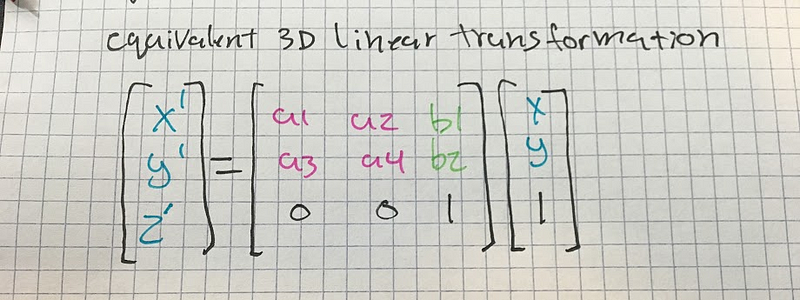 equivalent 3D linear transformation
x' = a1 a2 b1 x
y' a3 a4 b2 y
z' 0 0 1 1